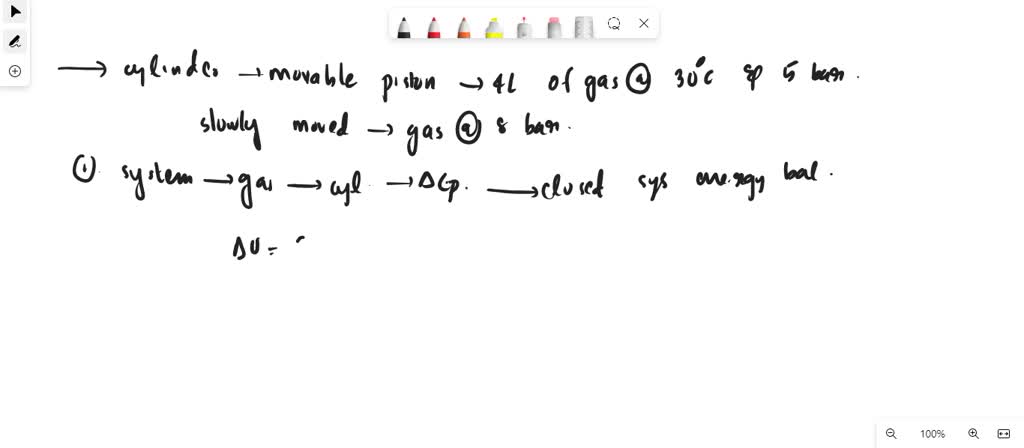 → cylinder → movable piston → 4L of gas @ 30°C & 5 bar.
slowly moved → gas @ 8 bar.
① system → gas → cyl → ΔEp. → closed sys energy bal.
ΔU =
100%